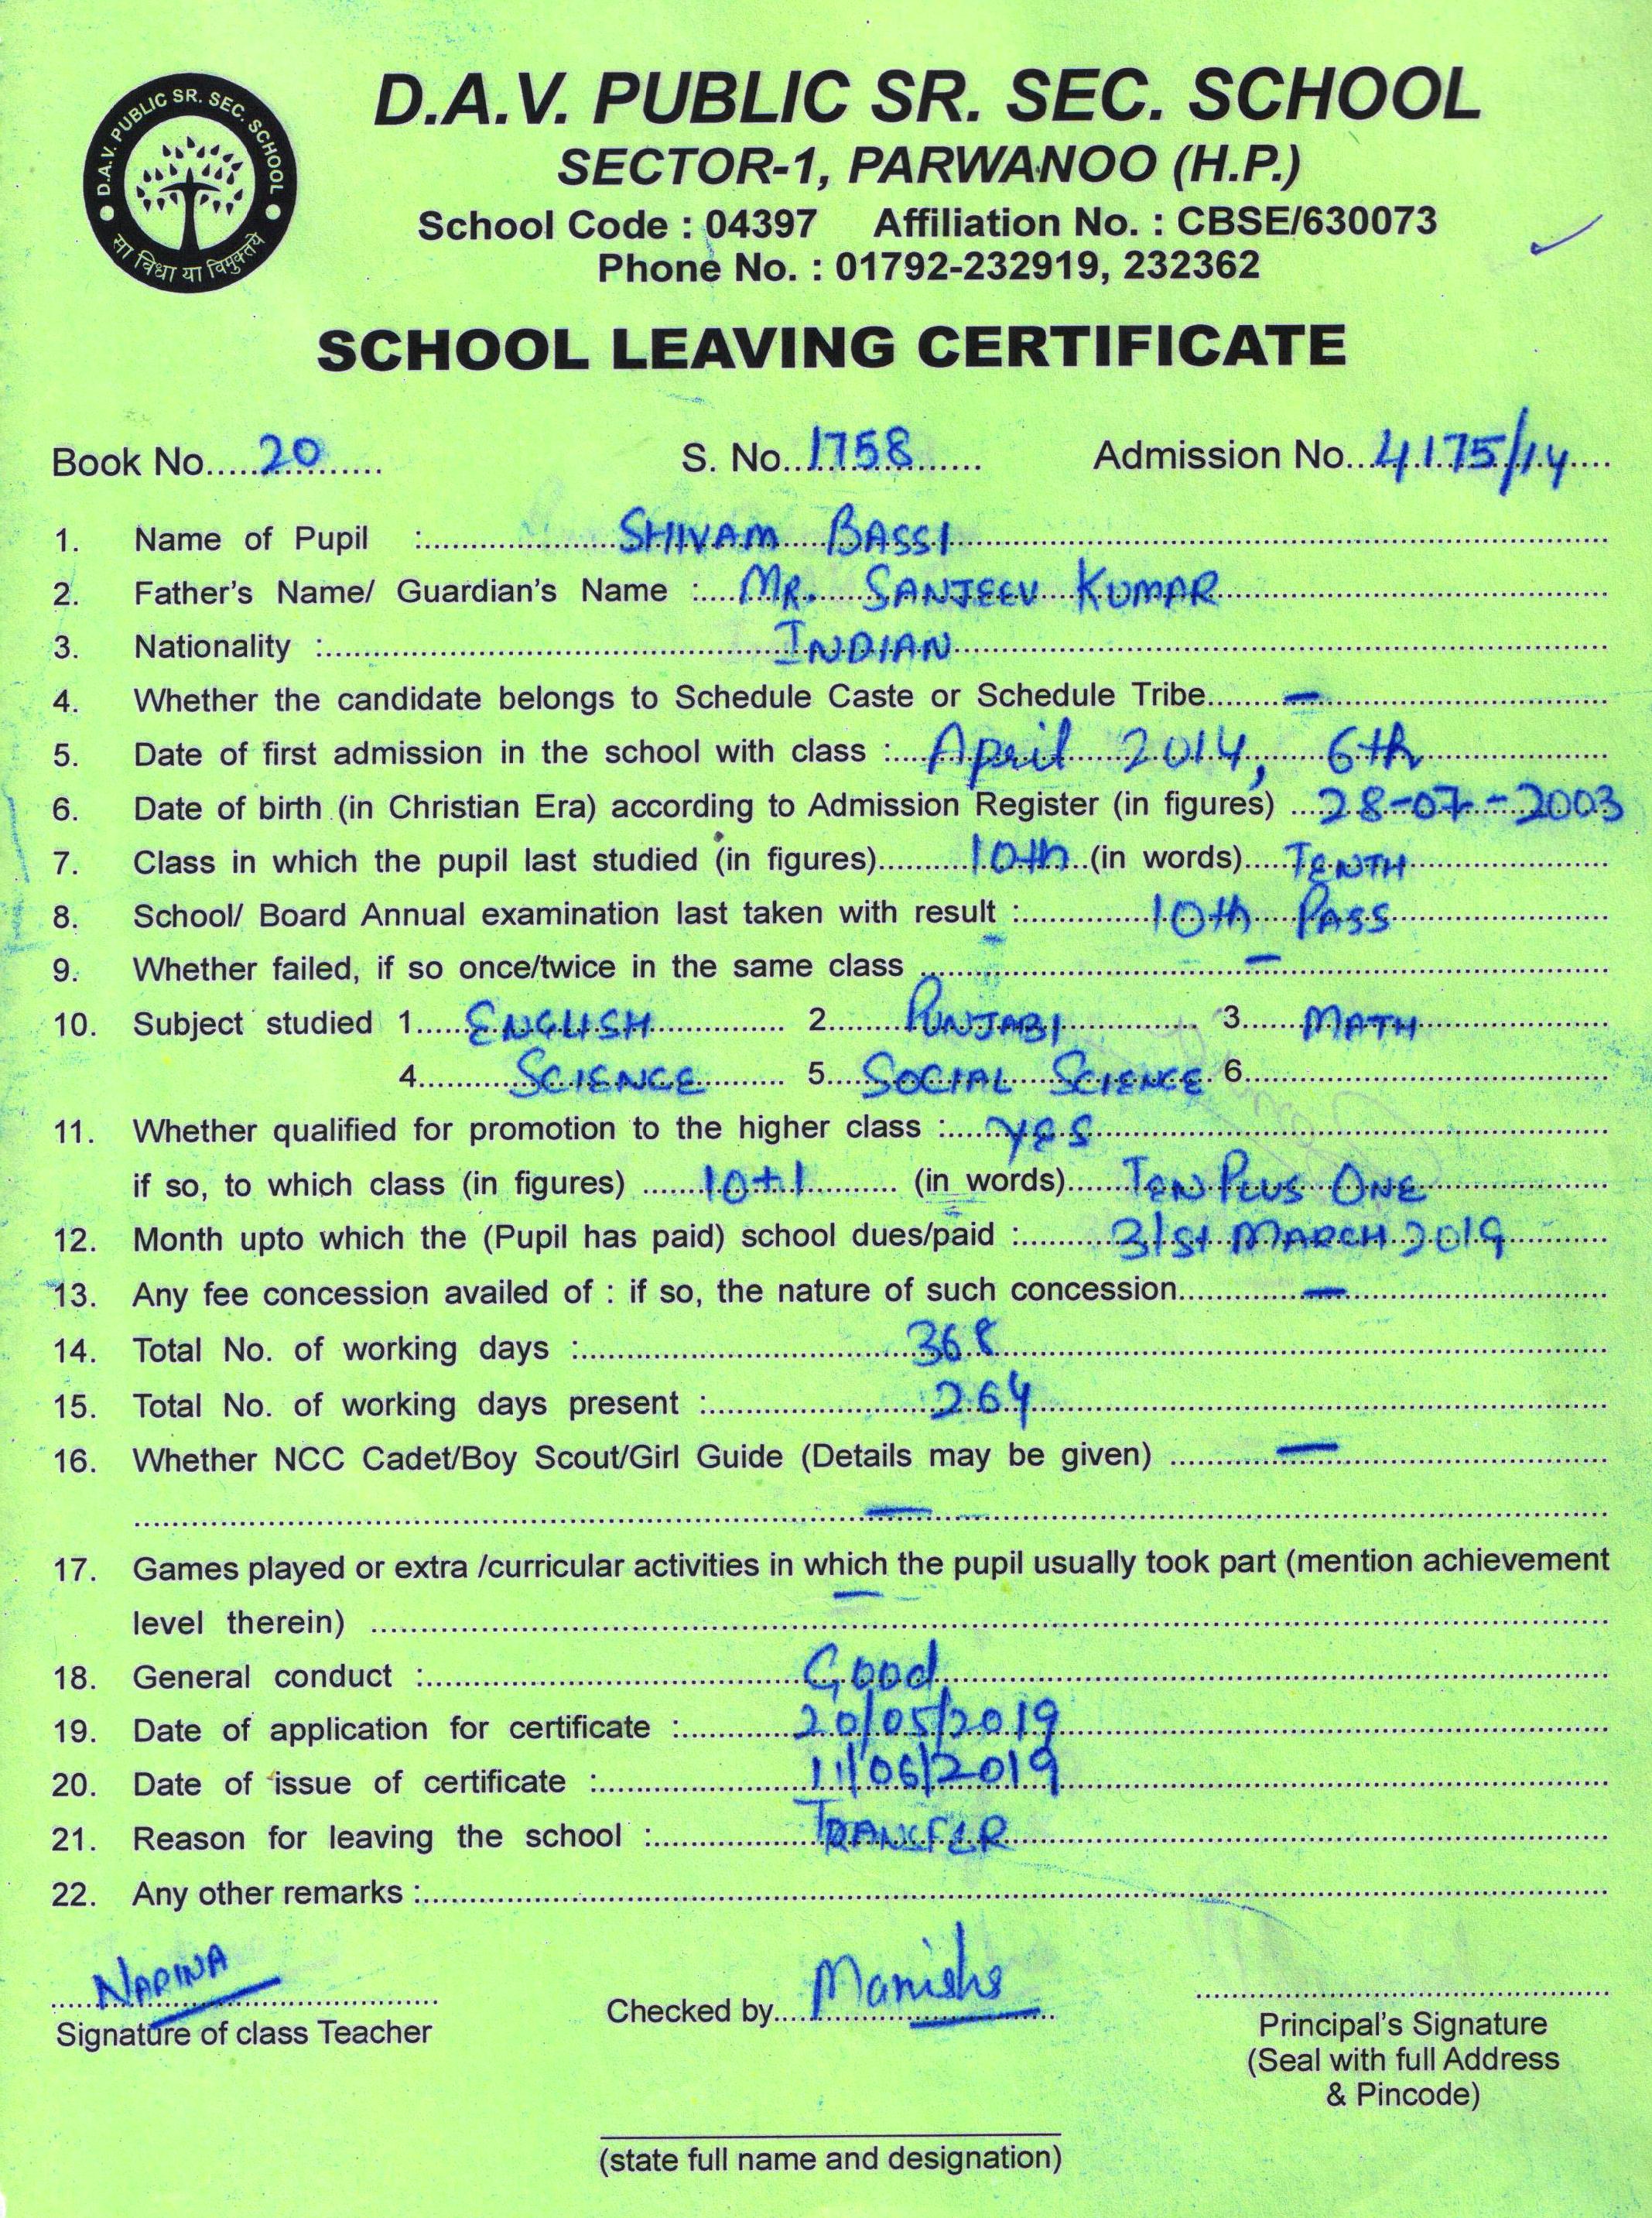 D.A.V. PUBLIC SR. SEC. SCHOOL
सा विद्या या विमुक्तये
D.A.V. PUBLIC SR. SEC. SCHOOL
SECTOR-1, PARWANOO (H.P.)
School Code : 04397 Affiliation No. : CBSE/630073
Phone No. : 01792-232919, 232362
SCHOOL LEAVING CERTIFICATE
Book No.....20......... S. No..1758...... Admission No...4175/14....
1. Name of Pupil :..........SHIVAM BASSI..........
2. Father's Name/ Guardian's Name :....MR. SANJEEV KUMAR..........
3. Nationality :..........INDIAN..........
4. Whether the candidate belongs to Schedule Caste or Schedule Tribe........—..........
5. Date of first admission in the school with class :....April 2014, 6th..........
6. Date of birth (in Christian Era) according to Admission Register (in figures) ...28-07-2003
7. Class in which the pupil last studied (in figures)..........10th..(in words)....TENTH..........
8. School/ Board Annual examination last taken with result :..........10th PASS..........
9. Whether failed, if so once/twice in the same class ..........—..........
10. Subject studied 1.....ENGLISH.......... 2.......PUNJABI.......... 3......MATH..........
4..........SCIENCE.......... 5....SOCIAL SCIENCE. 6..........
11. Whether qualified for promotion to the higher class :....yes..........
if so, to which class (in figures) ......10+1......... (in words).....TEN PLUS ONE..........
12. Month upto which the (Pupil has paid) school dues/paid :........31st MARCH 2019..........
13. Any fee concession availed of : if so, the nature of such concession..........—..........
14. Total No. of working days :..........368..........
15. Total No. of working days present :..........264..........
16. Whether NCC Cadet/Boy Scout/Girl Guide (Details may be given) ..........—..........
..........—..........
17. Games played or extra /curricular activities in which the pupil usually took part (mention achievement
level therein) ..........—..........
18. General conduct :..........Good..........
19. Date of application for certificate :..........20/05/2019..........
20. Date of issue of certificate :..........11/06/2019..........
21. Reason for leaving the school :..........TRANSFER..........
22. Any other remarks :..........
Signature of class Teacher
Checked by....Manisha..........
Principal's Signature
(Seal with full Address
& Pincode)
(state full name and designation)